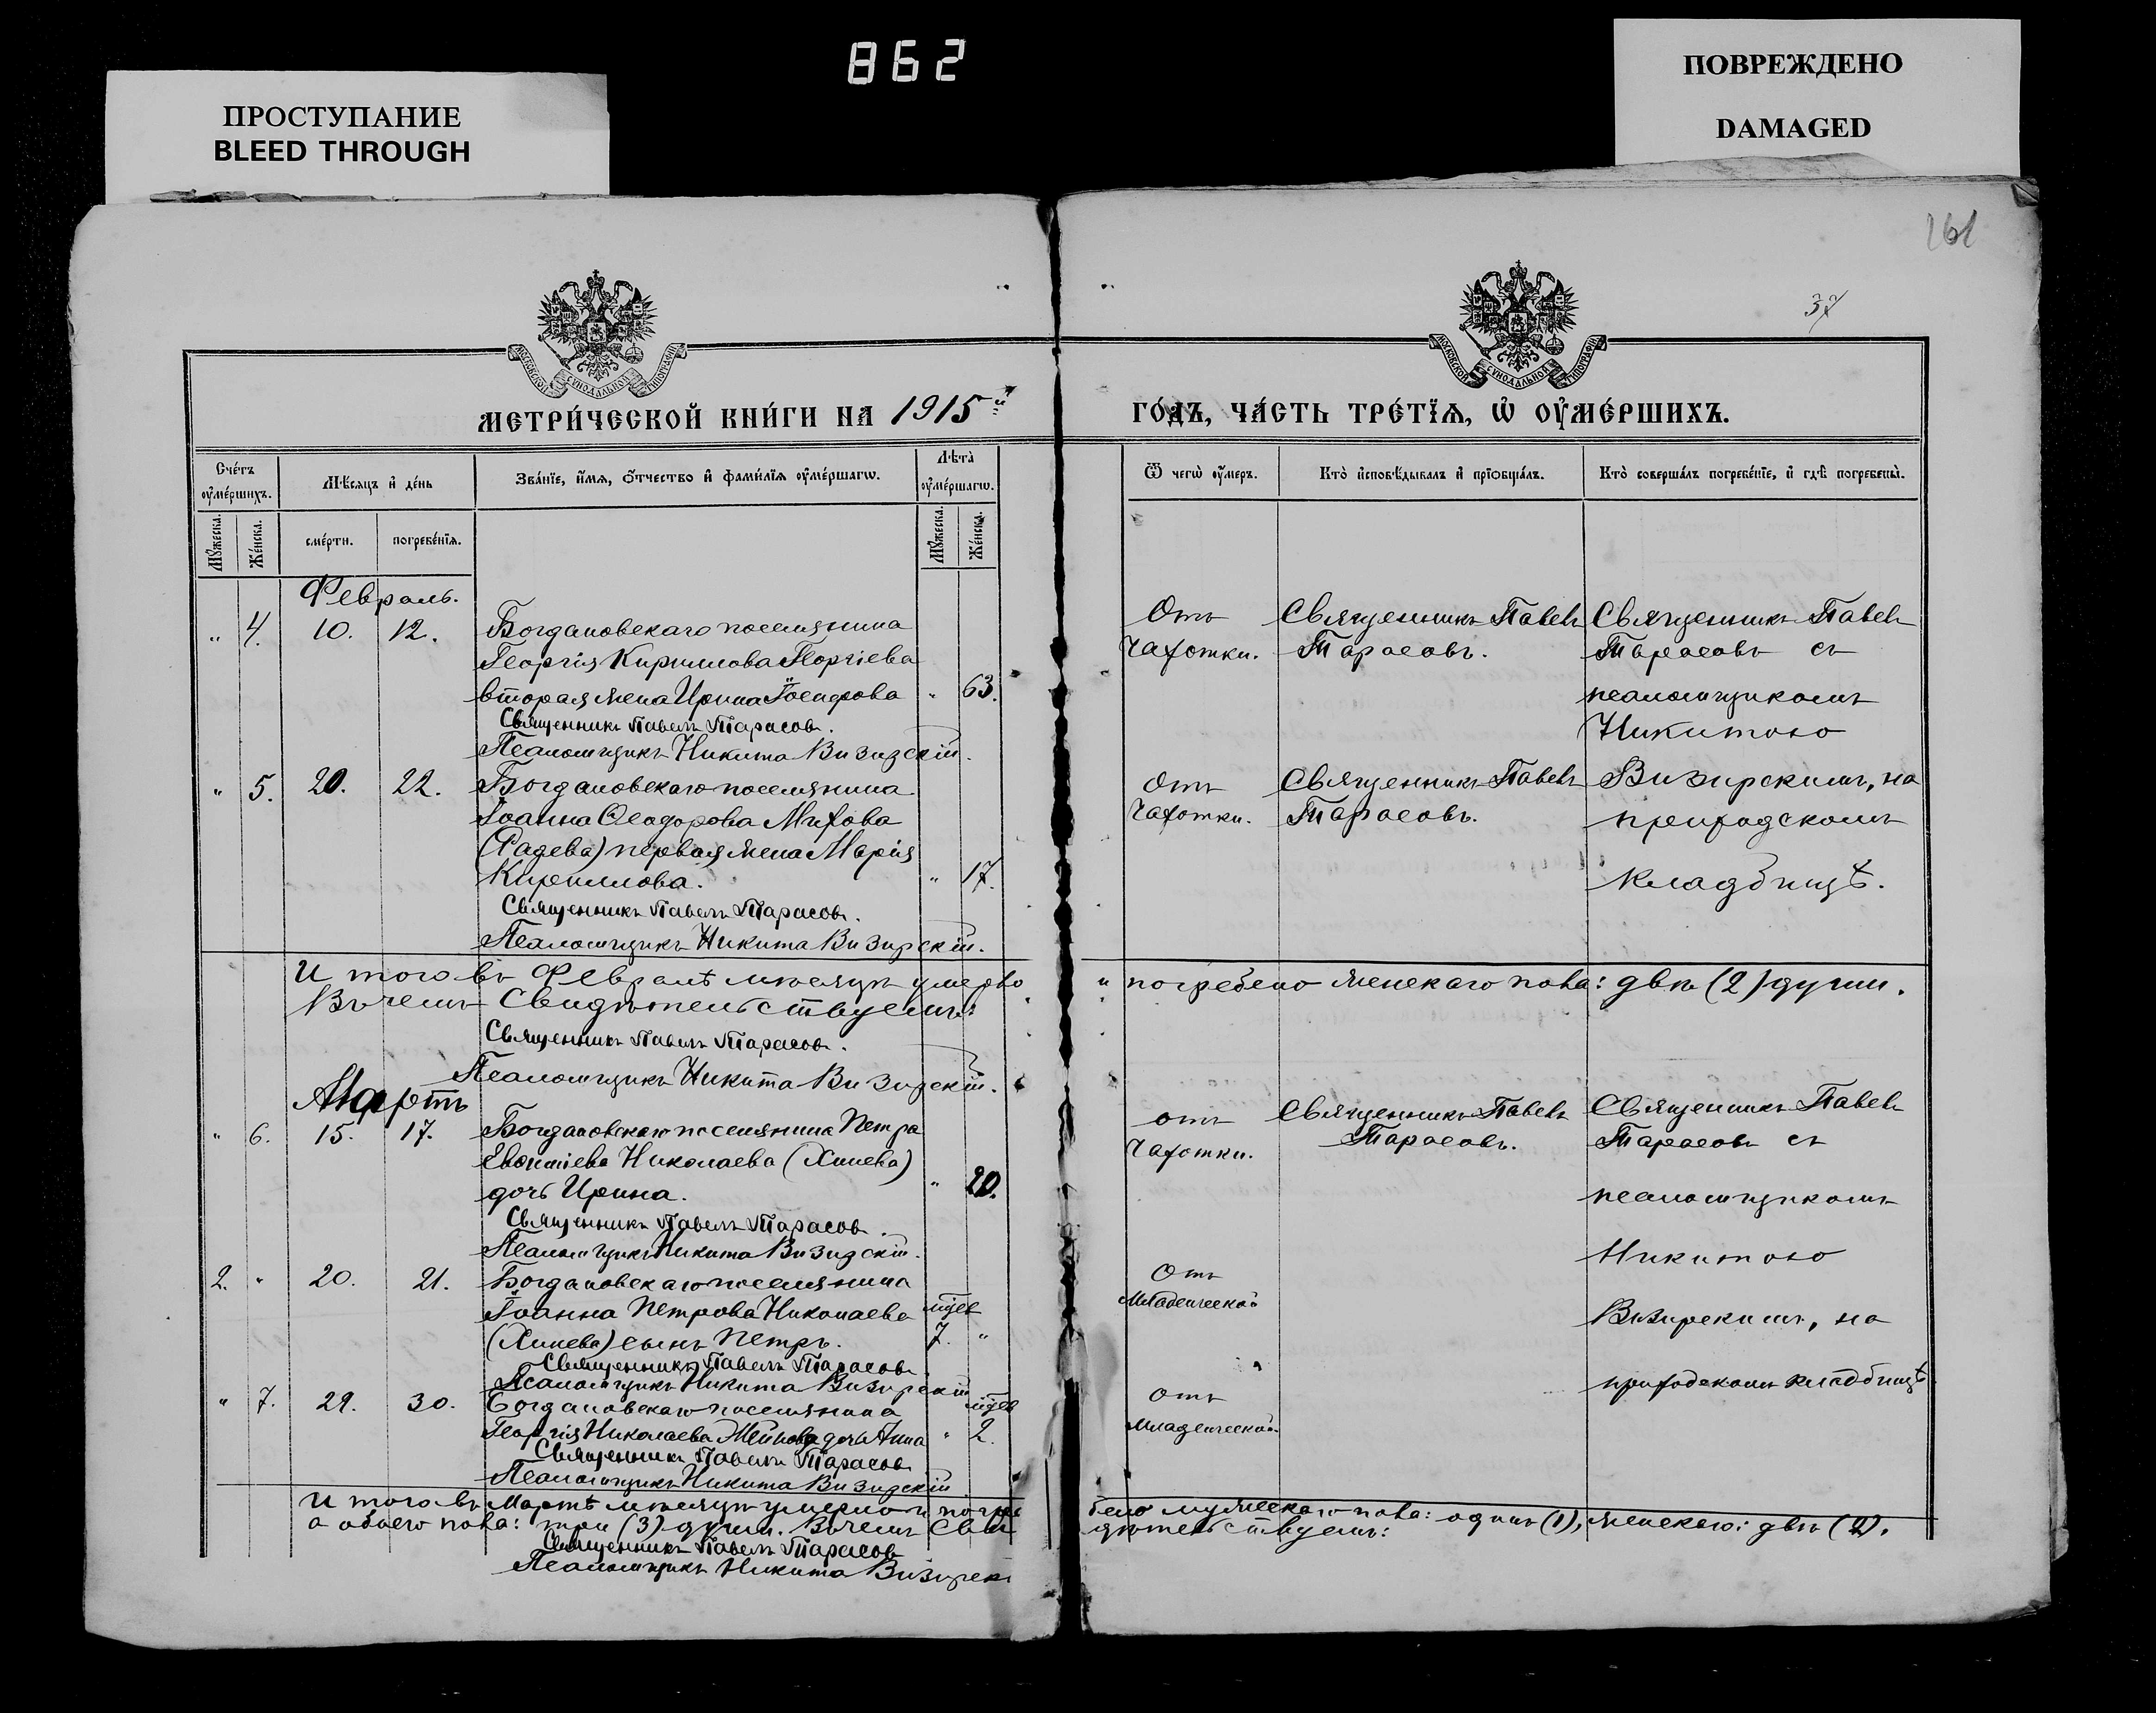 862
ПРОСТУПАНИЕ
BLEED THROUGH
ПОВРЕЖДЕНО
DAMAGED
161
37
МОСКОВСКОЙ СѴНОДАЛЬНОЙ ТИПОГРАФІИ
МОСКОВСКОЙ СѴНОДАЛЬНОЙ ТИПОГРАФІИ
МЕТРИ́ЧЕСКОЙ КНИ́ГИ НА 1915й
ГО́ДЪ, ЧА́СТЬ ТРЕ́ТЇѦ, Ѡ҆ ОУ҆МЕ́РШИХЪ.
Сче́тъ оу҆ме́ршихъ.
Мѣ́сяцъ и҆ де́нь
Зва́нїе, и҆́мя, ѻ҆́тчество и҆ фами́лїя оу҆ме́ршагѡ.
Лѣта̀ оу҆ме́ршагѡ.
Ѿ чегѡ̀ оу҆́меръ.
Кто̀ и҆сповѣ́дывалъ и҆ прїѡбща́лъ.
Кто̀ соверша́лъ погребе́нїе, и҆ гдѣ̀ погребены̀.
Му́жеска.
Же́нска.
сме́рти.
погребе́нїя.
Му́жеска.
Же́нска.
Февраль.
" 4. 10. 12. Богдановскаго поселянина
Георгія Кириллова Георгіева
вторая жена Ирина Іосифова " 63.
Священникъ Павелъ Тарасовъ.
Псаломщикъ Никита Визирскій.
Отъ
Чахотки.
Священникъ Павелъ
Тарасовъ.
Священникъ Павелъ
Тарасовъ съ
псаломщикомъ
Никитою
Визирскимъ, на
приходскомъ
кладбищѣ.
" 5. 20. 22. Богдановскаго поселянина
Іоанна Ѳеодорова
первая жена Марія
Кириллова. " 17.
Священникъ Павелъ Тарасовъ.
Псаломщикъ Никита Визирскій.
Отъ
Чахотки.
Священникъ Павелъ
Тарасовъ.
Итого въ Февралѣ мѣсяцѣ умерло
и погребено женскаго пола: двѣ (2) души.
Въ чемъ свидѣтельствуемъ:
Священникъ Павелъ Тарасовъ.
Псаломщикъ Никита Визирскій.
Мартъ
" 6. 15. 17. Богдановскаго поселянина Петра
Евѳиміева Николаева (Хинева)
дочь Ирина. " 20.
Священникъ Павелъ Тарасовъ.
Псаломщикъ Никита Визирскій.
отъ
Чахотки.
Священникъ Павелъ
Тарасовъ.
Священникъ Павелъ
Тарасовъ съ
псаломщикомъ
Никитою
Визирскимъ, на
приходскомъ кладбищѣ
2. " 20. 21. Богдановскаго поселянина
Іоанна Петрова Николаева мцев
(Хинева) сынъ Петръ. 7. "
Священникъ Павелъ Тарасовъ
Псаломщикъ Никита Визирскій
Отъ
Младенческой
" 7. 29. 30. Богдановскаго поселянина мцев
Георгія Николаева дочь Анна " 2.
Священникъ Павелъ Тарасовъ
Псаломщикъ Никита Визирскій
Отъ
Младенческой.
Итого въ Мартѣ мѣсяцѣ умерло и погре
бено мужескаго пола: одинъ (1), женскаго: двѣ (2).
а обоего пола: три (3) души. Въ чемъ сви
дѣтельствуемъ:
Священникъ Павелъ Тарасовъ
Псаломщикъ Никита Визирскі